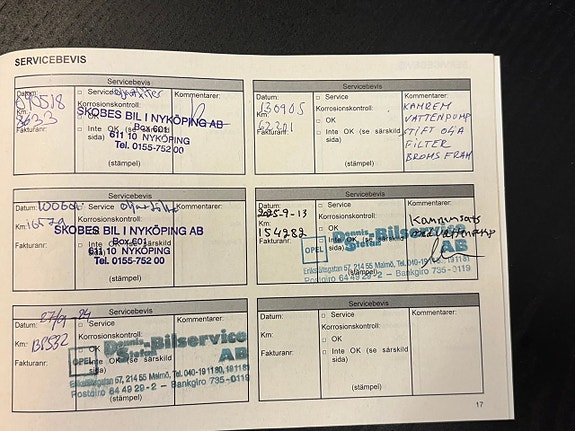 SERVICEBEVIS
Servicebevis
Datum: 090518
Km:
Fakturanr:
□ Service
Korrosionskontroll:
□ OK
□ Inte OK (se särskild
sida)
(stämpel)
Kommentarer:
SKOBES BIL I NYKÖPING AB
Box 601
611 10 NYKÖPING
Tel. 0155-752 00
Servicebevis
Datum: 130905
Km: 62201
Fakturanr:
□ Service
Korrosionskontroll:
□ OK
□ Inte OK (se särskild
sida)
(stämpel)
Kommentarer:
KAMREM
VATTENPUMP
STIFT OLJA
FILTER
BROMS FRAM
Servicebevis
Datum:
Km:
Fakturanr:
Korrosionskontroll:
□ Inte OK (se särskild
sida)
(stämpel)
Kommentarer:
SKOBES BIL I NYKÖPING AB
Box 601
611 10 NYKÖPING
Tel. 0155-752 00
Servicebevis
Datum: 2025-9-13
Km: 154282
Fakturanr:
□ Service
Korrosionskontroll:
□ OK
(stämpel)
Kommentarer:
OPEL
Dennis-Bilservice
Stefan AB
Eriksfältsgatan 57, 214 55 Malmö, Tel. 040-19 11 80, 19 11 81
Postgiro 64 49 29-2 – Bankgiro 735-0119
Servicebevis
Datum:
Km:
Fakturanr:
□ Service
Korrosionskontroll:
□ OK
□ Inte OK (se särskild
sida)
(stämpel)
Kommentarer:
OPEL
Dennis-Bilservice
Stefan AB
Eriksfältsgatan 57, 214 55 Malmö, Tel. 040-19 11 80, 19 11 81
Postgiro 64 49 29-2 – Bankgiro 735-0119
Servicebevis
Datum:
Km:
Fakturanr:
□ Service
Korrosionskontroll:
□ OK
□ Inte OK (se särskild
sida)
(stämpel)
Kommentarer:
17